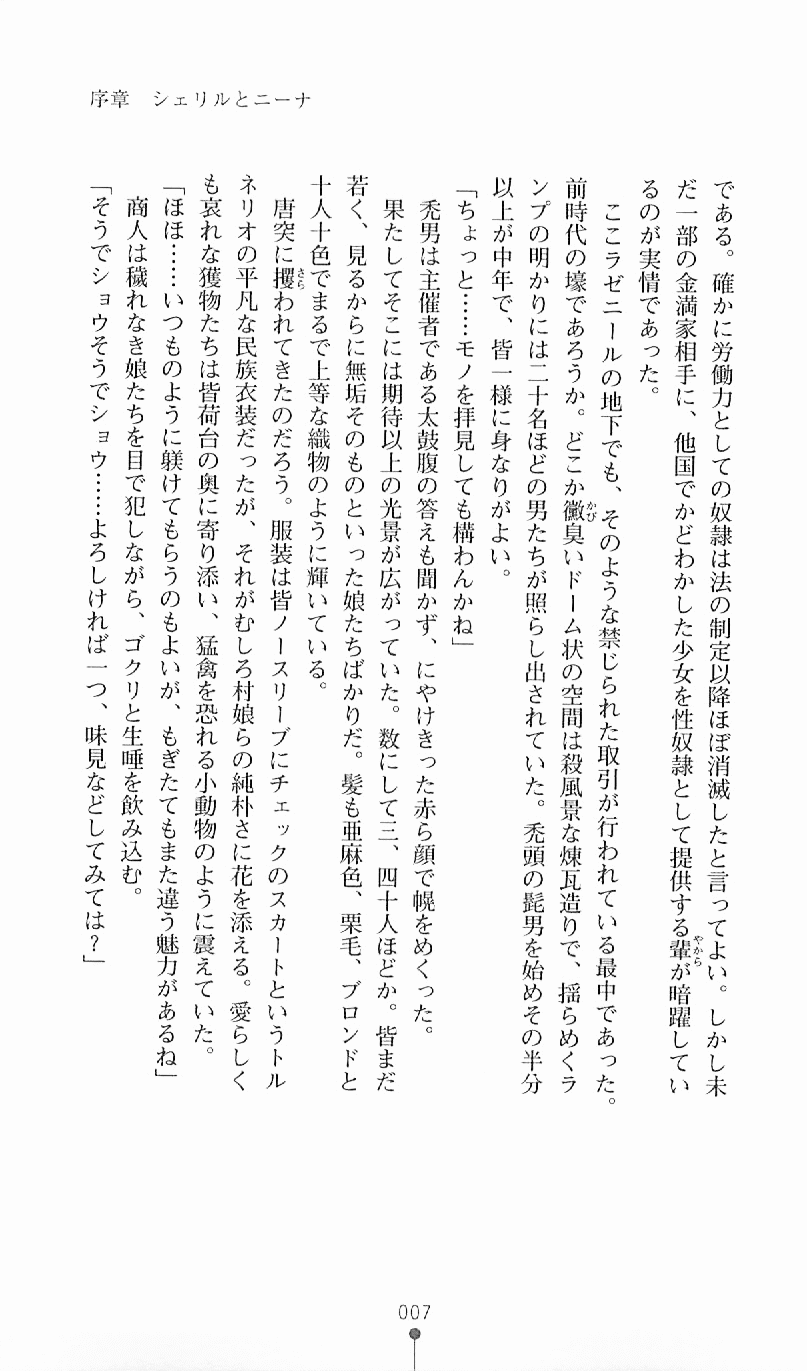 序章　シェリルとニーナ
である。確かに労働力としての奴隷は法の制定以降ほぼ消滅したと言ってよい。しかし未
だ一部の金満家相手に、他国でかどわかした少女を性奴隷として提供する輩が暗躍してい
るのが実情であった。
ここラゼニールの地下でも、そのような禁じられた取引が行われている最中であった。
前時代の壕であろうか。どこか黴臭いドーム状の空間は殺風景な煉瓦造りで、揺らめくラ
ンプの明かりには二十名ほどの男たちが照らし出されていた。禿頭の髭男を始めその半分
以上が中年で、皆一様に身なりがよい。
「ちょっと……モノを拝見しても構わんかね」
禿男は主催者である太鼓腹の答えも聞かず、にやけきった赤ら顔で幌をめくった。
果たしてそこには期待以上の光景が広がっていた。数にして三、四十人ほどか。皆まだ
若く、見るからに無垢そのものといった娘たちばかりだ。髪も亜麻色、栗毛、ブロンドと
十人十色でまるで上等な織物のように輝いている。
唐突に攫われてきたのだろう。服装は皆ノースリーブにチェックのスカートというトル
ネリオの平凡な民族衣装だったが、それがむしろ村娘らの純朴さに花を添える。愛らしく
も哀れな獲物たちは皆荷台の奥に寄り添い、猛禽を恐れる小動物のように震えていた。
「ほほ……いつものように躾けてもらうのもよいが、もぎたてもまた違う魅力があるね」
商人は穢れなき娘たちを目で犯しながら、ゴクリと生唾を飲み込む。
「そうでショウそうでショウ……よろしければ一つ、味見などしてみては？」
007